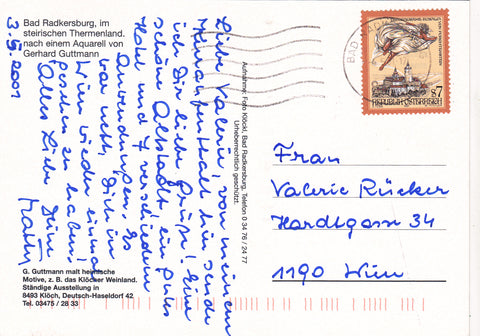 Bad Radkersburg, im
steirischen Thermenland.
nach einem Aquarell von
Gerhard Guttmann
3.5.2001
Liebe Valerie, von meinem
Kuraufenthalt hier sende
ich Dir liebe Grüße! Eine
schöne Altstadt, ein gutes
Hotel und 7 verschiedene
Anwendungen. Es
war nett, Dich in
Wien wieder einmal
gesehen zu haben!
Alles Liebe Deine
G. Guttmann malt heimische
Motive, z. B. das Klöcher Weinland.
Ständige Ausstellung in
8493 Klöch, Deutsch-Haseldorf 42
Tel. 03475 / 28 33
Aufnahme: Foto Klöckl, Bad Radkersburg, Telefon 0 34 76 / 24 77
Urheberrechtlich geschützt.
BAD RADK
s7
REPUBLIK ÖSTERREICH
Frau
Valerie Rücker
Hardtgasse 34
1190 Wien